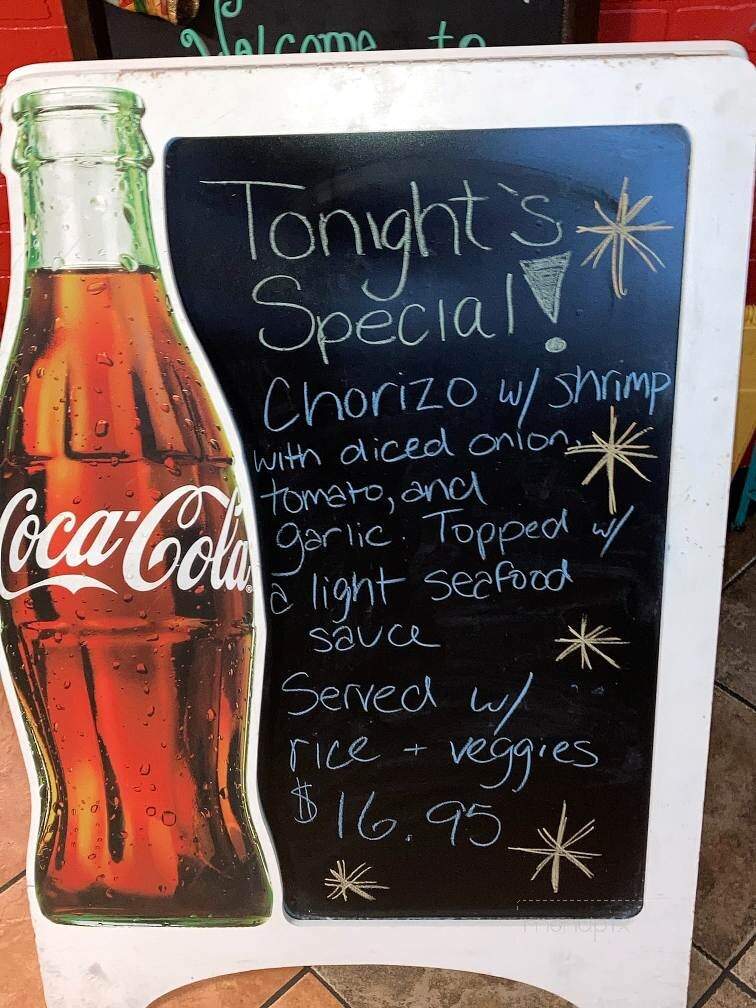 Welcome to
Tonight's
Special!
Chorizo w/ shrimp
with diced onion,
tomato, and
garlic. Topped w/
a light seafood
sauce
Served w/
rice + veggies
$16.95
Coca-Cola